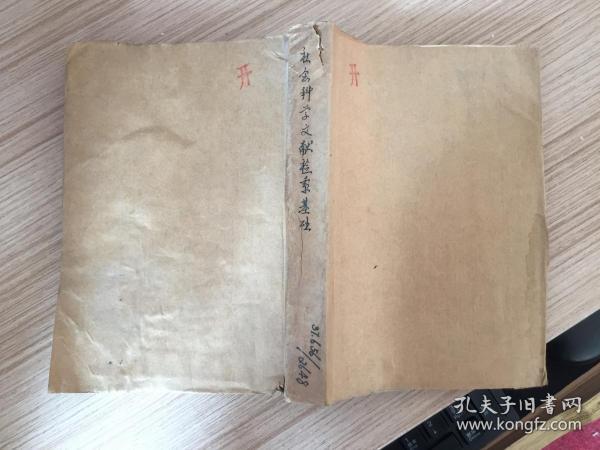 开
社会科学文献检索基础
37.656
/2628
开
孔夫子旧书网
www.kongfz.com